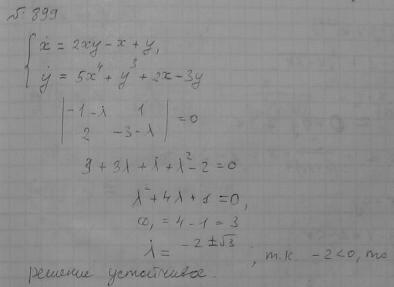 № 899
ẋ = 2xy - x + y,
ẏ = 5x⁴ + y³ + 2x - 3y
| -1-λ 1 |
| 2 -3-λ | = 0
3 + 3λ + λ + λ² - 2 = 0
λ² + 4λ + 1 = 0,
= 4 - 1 = 3
λ = -2 ± √3, т.к. -2 < 0, то
решение устойчивое.